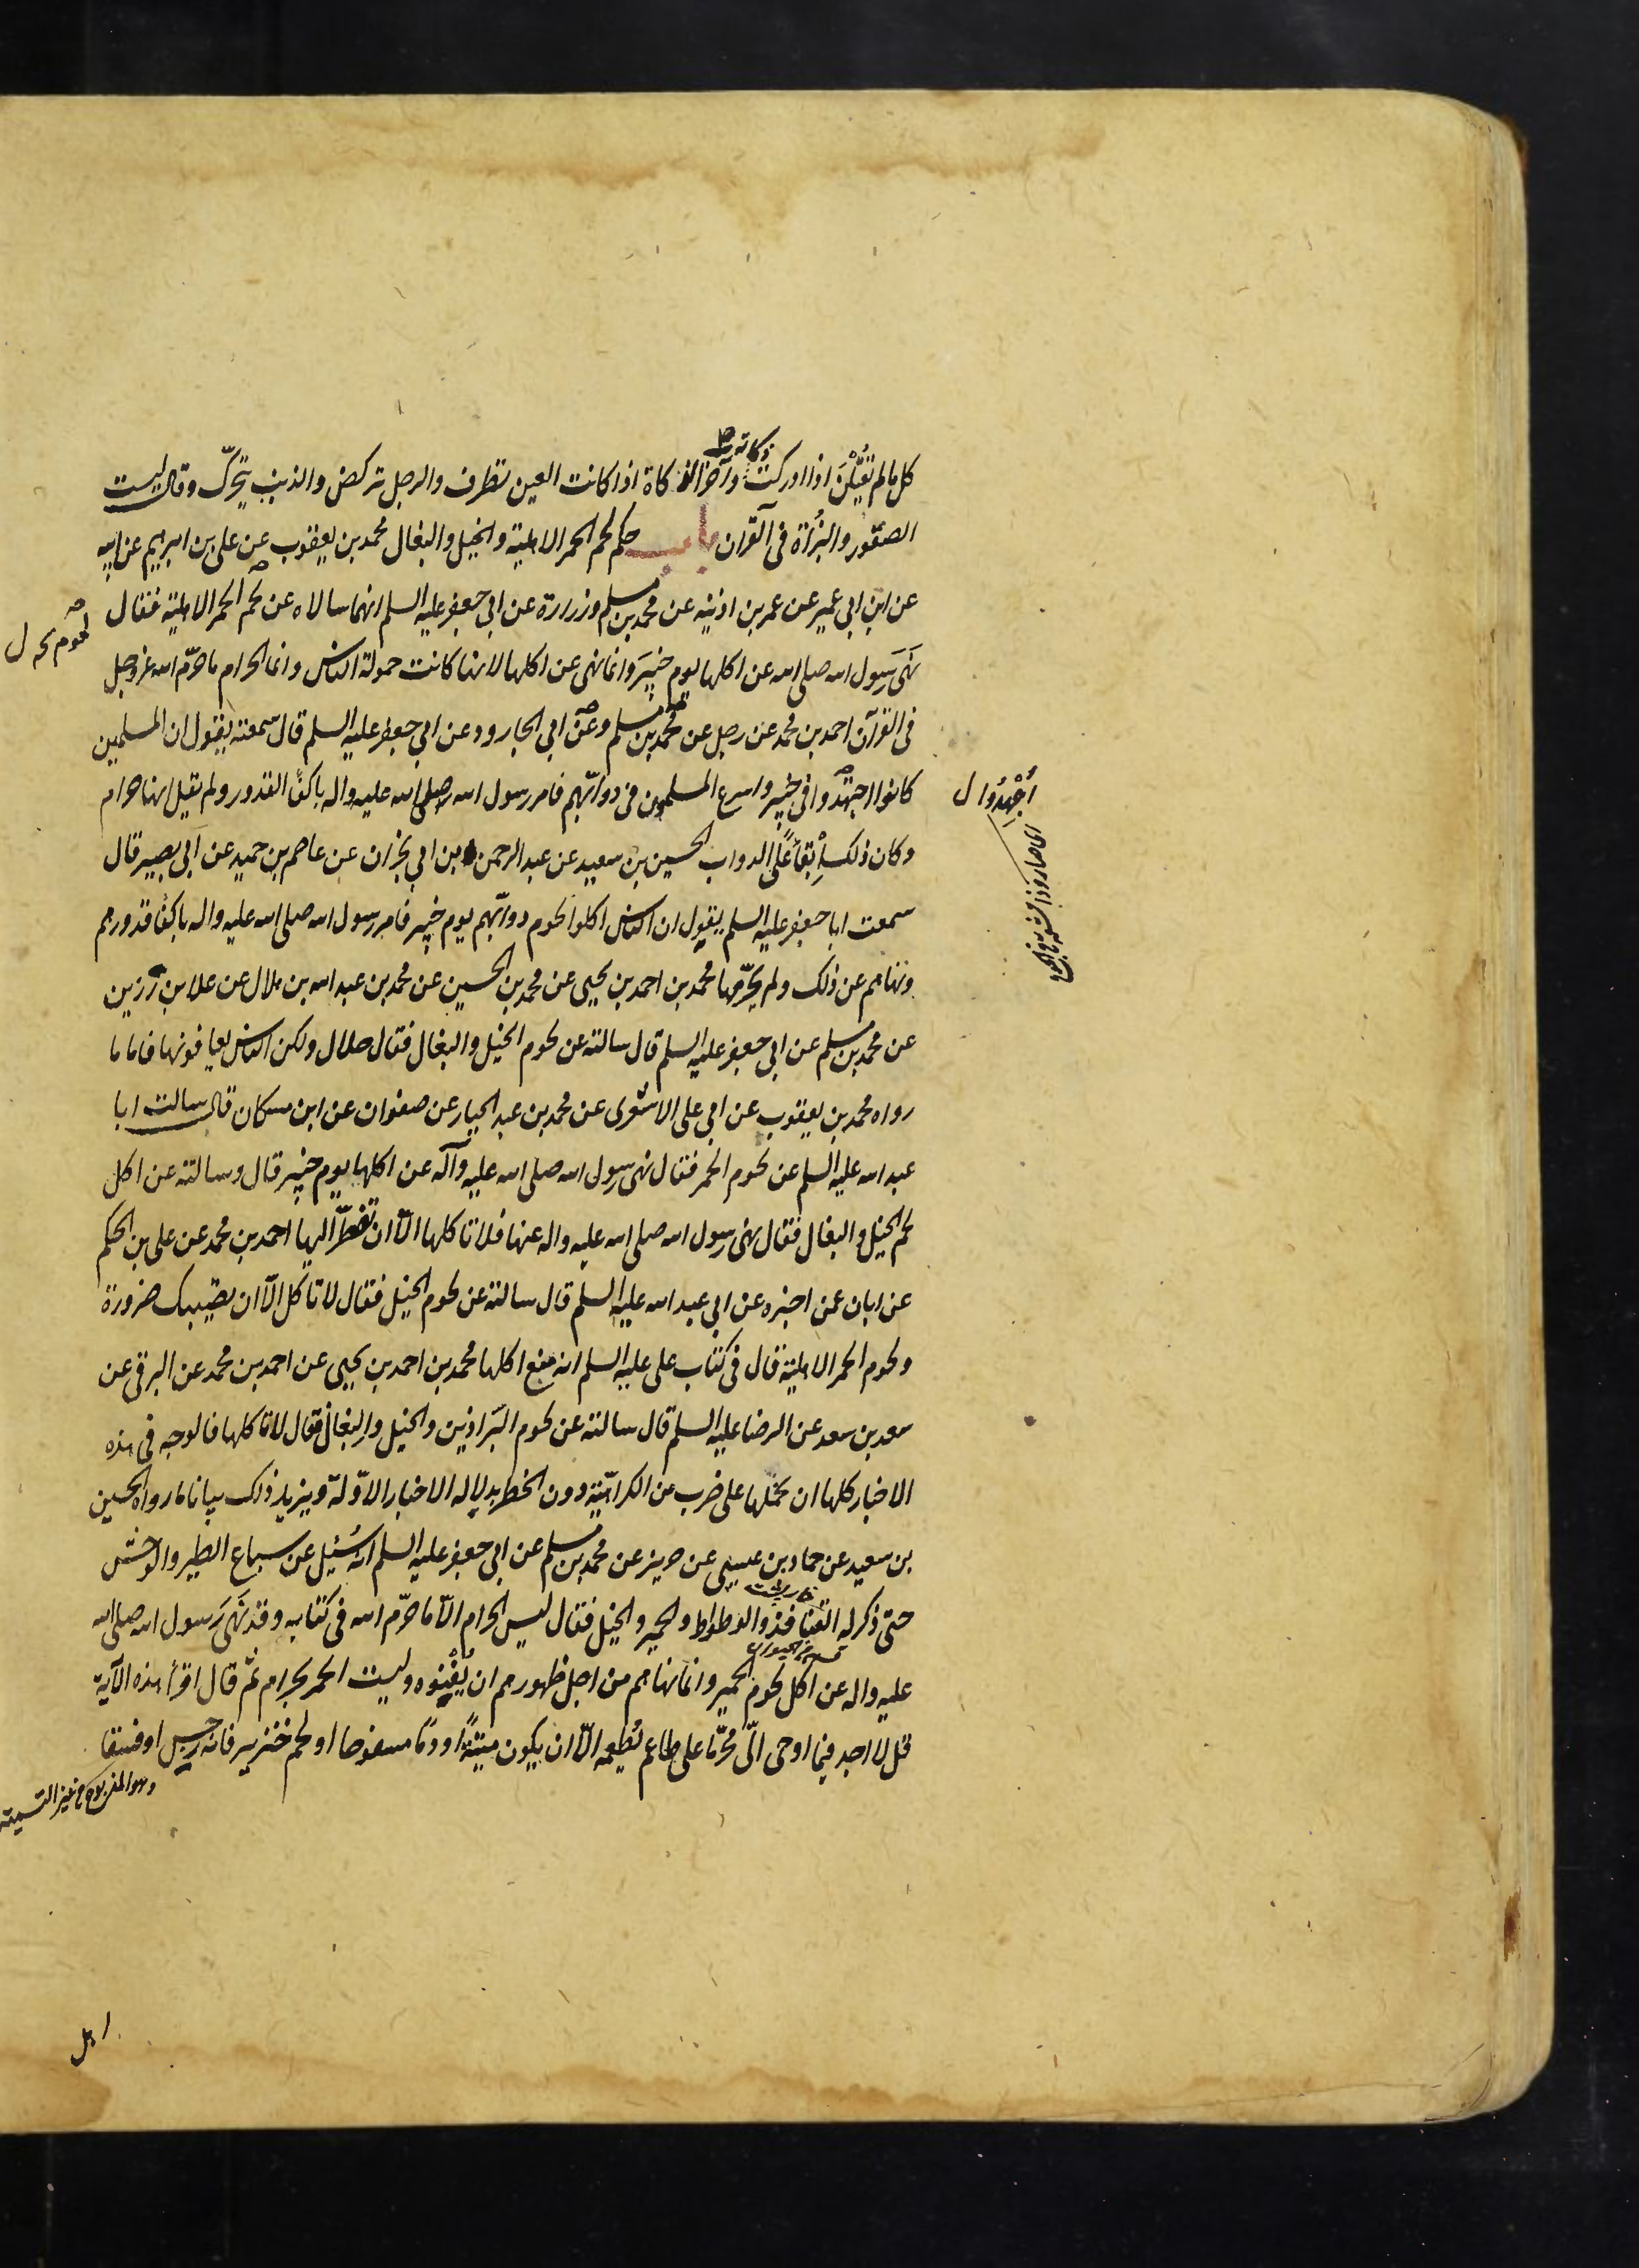 كل مالم تقتلن اذا ادركت ذكاته وآخر الذكاة اذا كانت العين تطرف والرجل تركض والذنب يتحرك وقال ليست
الصقور والبزاة فى القرآن باب حكم لحم الحمر الاهلية والخيل والبغال محمد بن يعقوب عن على بن ابرهيم عن ابيه
عن ابن ابى عمير عن عمر بن اذينه عن محمد بن مسلم وزرارة عن ابى جعفر عليه السلم انهما سالاه عن لحم الحمر الاهلية فقال
نَهَى رسول الله صلى الله عن اكلها يوم خيبر وانما نهى عن اكلها لانها كانت حمولة الناس وانما الحرام ما حرّم الله عز وجل
فى القرآن احمد بن محمد عن رجل عن محمد بن مسلم وعن ابى الجارود عن ابى جعفر عليه السلم قال سمعته يقول ان المسلمين
كانوا اجهدوا فى خيبر واسرع المسلمون فى دوابّهم فامر رسول الله صلى الله عليه واله باكفأ القدور ولم يقل انها حرام
وكان ذلك إبقاءً على الدواب الحسين بن سعيد عن عبد الرحمن بن ابى نجران عن عاصم بن حميد عن ابى بصير قال
سمعت ابا جعفر عليه السلم يقول ان الناس اكلوا لحوم دوابّهم يوم خيبر فامر رسول الله صلى الله عليه واله باكفأ قدورهم
ونهاهم عن ذلك ولم يحرّمها محمد بن احمد بن يحيى عن محمد بن الحسين عن محمد بن عبد الله بن هلال عن علا بن رزين
عن محمد بن مسلم عن ابى جعفر عليه السلم قال سالته عن لحوم الخيل والبغال فقال حلال ولكن الناس يعافونها فاما ما
رواه محمد بن يعقوب عن ابى على الاشعرى عن محمد بن عبد الجبار عن صفوان عن ابن مسكان قال سالت ابا
عبد الله عليه السلم عن لحوم الحمر فقال نهى رسول الله صلى الله عليه وآله عن اكلها يوم خيبر قال وسالته عن اكل
لحم الخيل والبغال فقال نهى رسول الله صلى الله عليه واله عنها فلا تاكلها الّا ان تضطرّ اليها احمد بن محمد عن على بن الحكم
عن ابان عمن اخبره عن ابى عبد الله عليه السلم قال سالته عن لحوم الخيل فقال لا تاكل الّا ان تصيبك ضرورة
ولحوم الحمر الاهلية قال فى كتاب على عليه السلم انه منع اكلها محمد بن احمد بن يحيى عن احمد بن محمد عن البرقى عن
سعد بن سعد عن الرضا عليه السلم قال سالته عن لحوم البراذين والخيل والبغال فقال لا تاكلها فالوجه فى هذه
الاخبار كلها ان نحملها على ضرب من الكراهيّة دون الحظر بدلالة الاخبار الاوّلة ويزيد ذلك بيانا ما رواه الحسين
بن سعيد عن حماد بن عيسى عن حريز عن محمد بن مسلم عن ابى جعفر عليه السلم انه سُئِل عن سباع الطير والوحش
حتى ذكر له القنافذ والوطواط والحمير والخيل فقال ليس الحرام الّا ما حرّم الله فى كتابه وقد نَهَى رسول الله صلى الله
عليه واله عن اكل لحوم الحمير وانما نهاهم من اجل ظهورهم ان يُفْنُوه وليست الحمر بحرام ثم قال اقرأ هذه الآية
قل لا اجد فيما اوحى الىّ محرّما على طاعم يطعمه الّا ان يكون ميتةً او دمًا مسفوحا او لحم خنزير فانه رجس او فسقا
اهل
اُجْهِدُوا ل